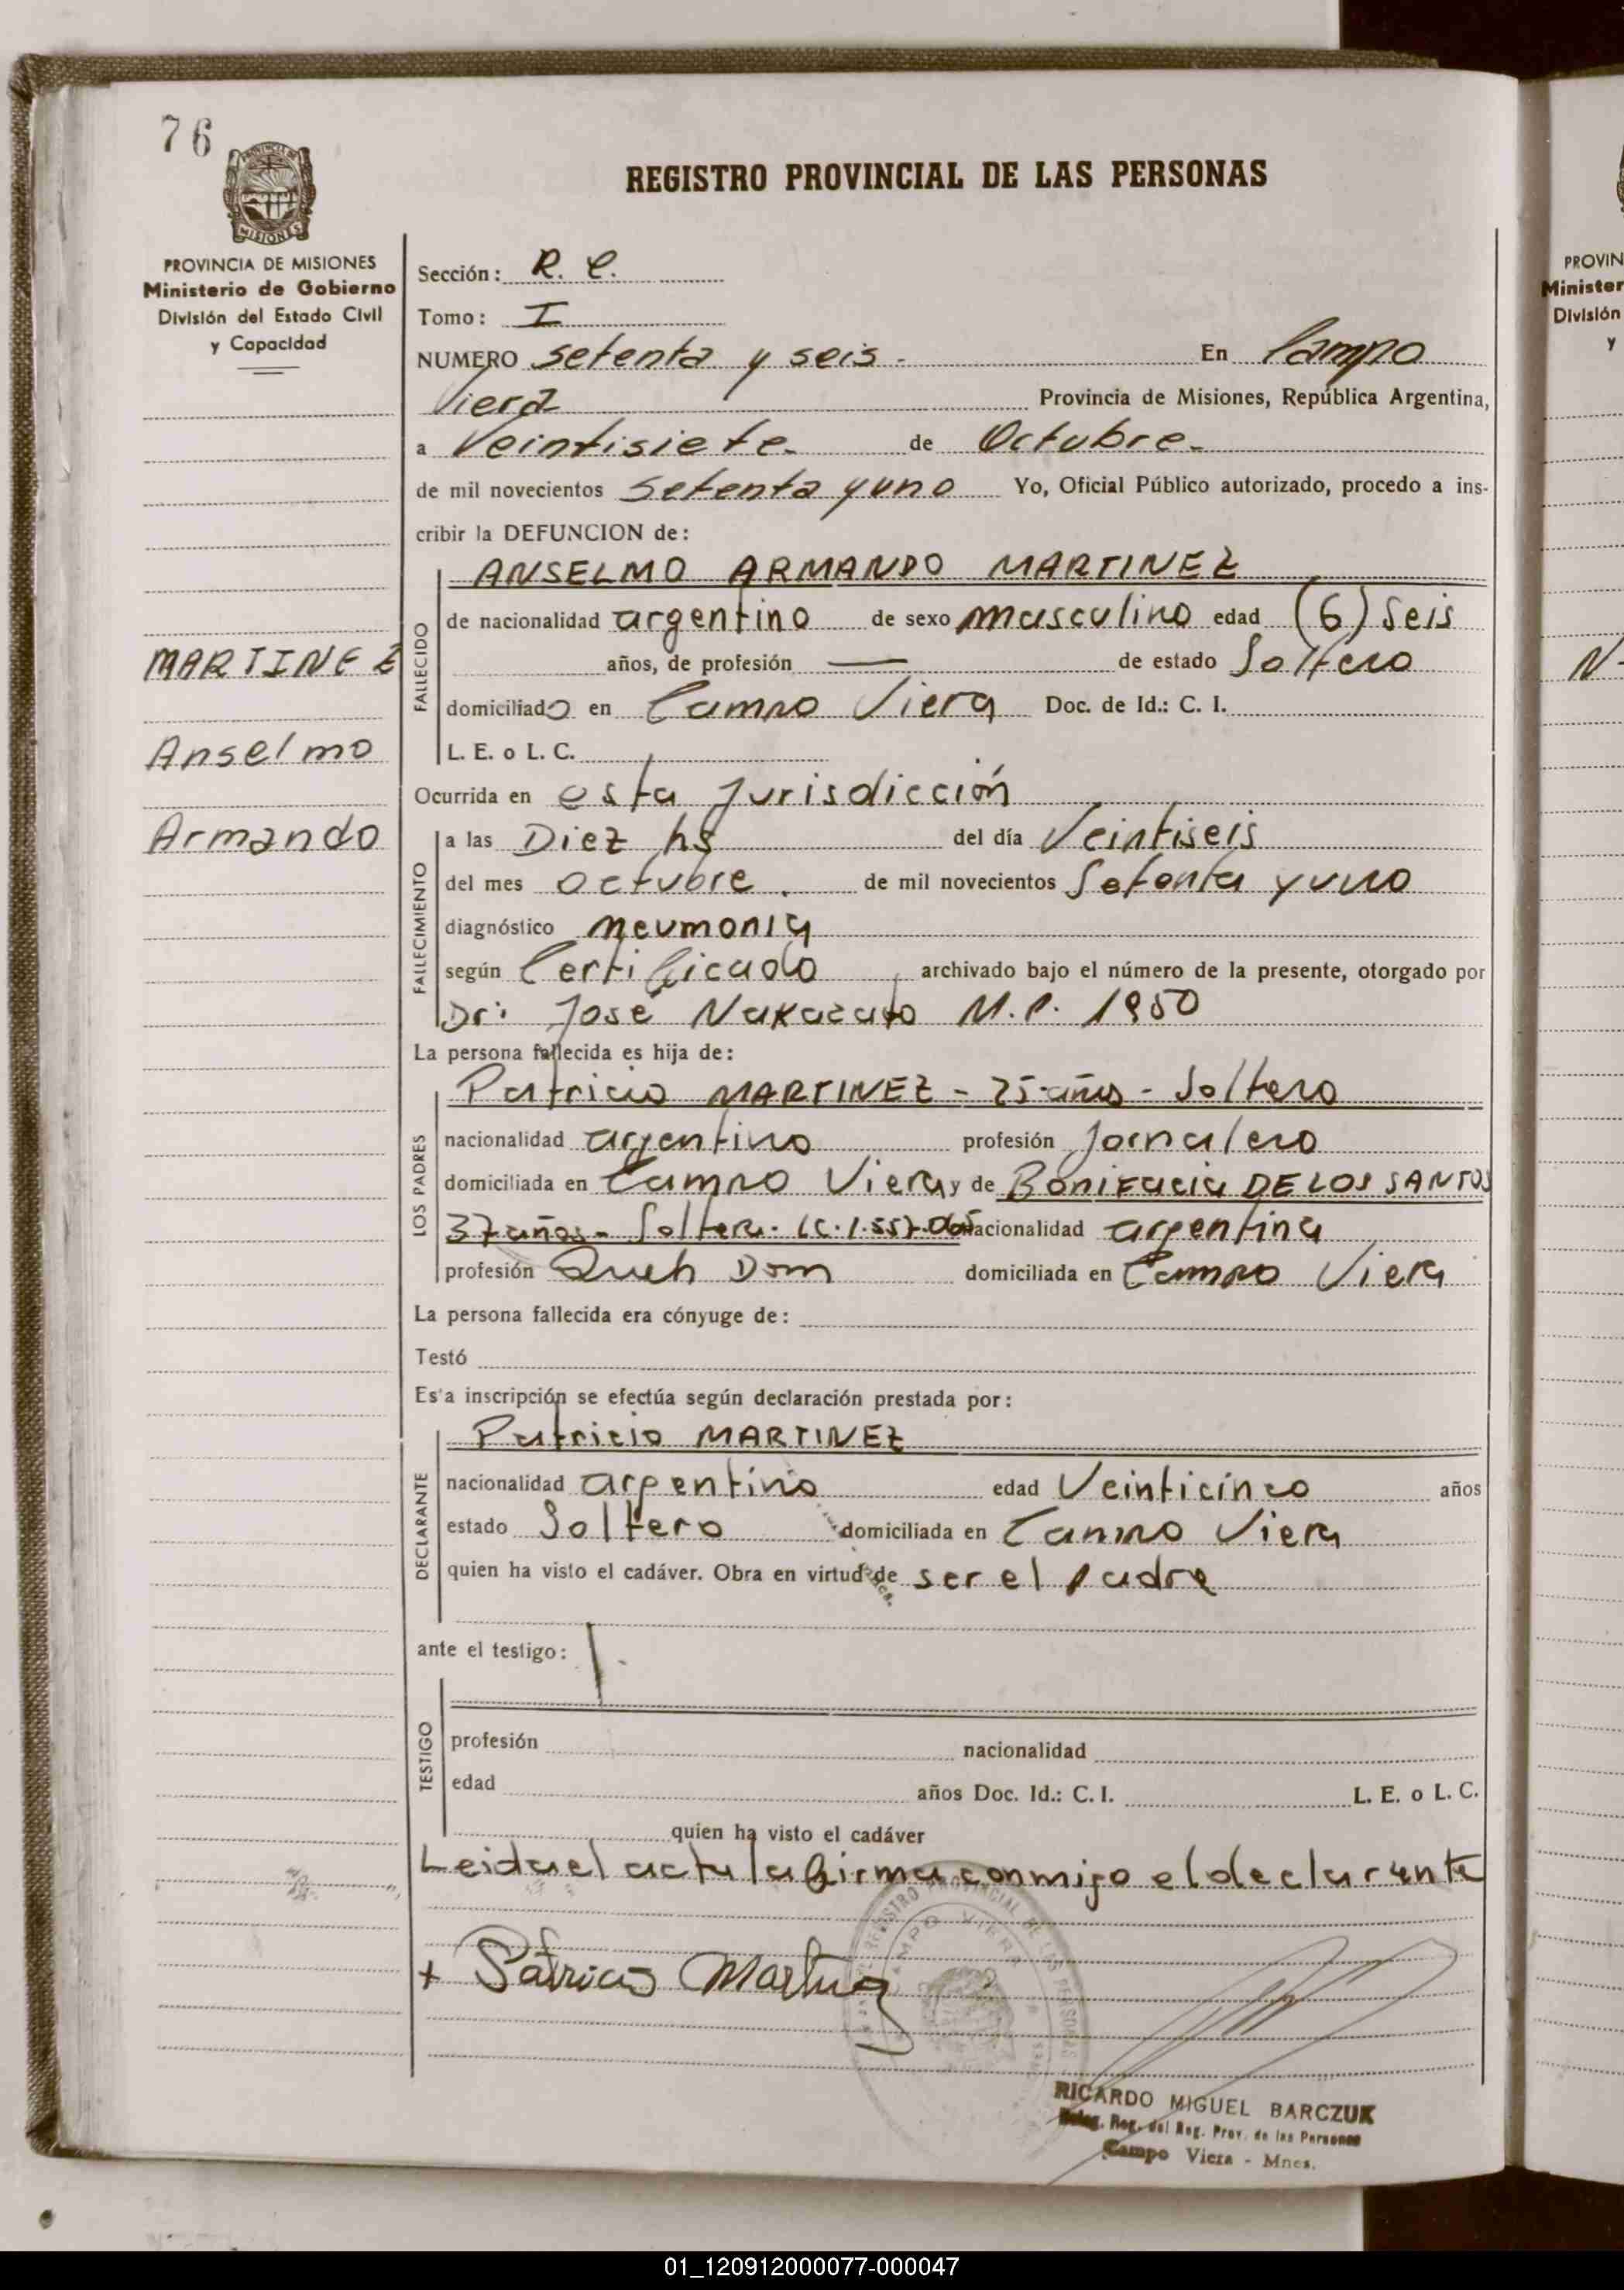 76
REGISTRO PROVINCIAL DE LAS PERSONAS
PROVINCIA DE MISIONES
Ministerio de Gobierno
División del Estado Civil
y Capacidad
MARTINEZ
Anselmo
Armando
Sección: R. C.
Tomo: I
NUMERO setenta y seis - En Campo
Viera Provincia de Misiones, República Argentina,
a Veintisiete - de Octubre -
de mil novecientos Setenta y uno Yo, Oficial Público autorizado, procedo a ins-
cribir la DEFUNCION de:
ANSELMO ARMANDO MARTINEZ
FALLECIDO
de nacionalidad argentino de sexo masculino edad (6) Seis
años, de profesión — de estado Soltero
domiciliado en Campo Viera Doc. de Id.: C. I.
L. E. o L. C.
Ocurrida en esta Jurisdicción
FALLECIMIENTO
a las Diez hs del día Veintiseis
del mes octubre . de mil novecientos Setenta y uno
diagnóstico neumonia
según Certificado archivado bajo el número de la presente, otorgado por
Dr: José Nakazato M.P. 1950
La persona fallecida es hija de:
LOS PADRES
Patricio MARTINEZ - 25 años - Soltero
nacionalidad argentino profesión Jornalero
domiciliada en Campo Viera y de Bonifacia DE LOS SANTOS
37 años - Soltera - nacionalidad argentina
profesión Queh Dom domiciliada en Campo Viera
La persona fallecida era cónyuge de:
Testó
Esta inscripción se efectúa según declaración prestada por:
DECLARANTE
Patricio MARTINEZ
nacionalidad argentino edad Veinticinco años
estado Soltero domiciliada en Campo Viera
quien ha visto el cadáver. Obra en virtud de ser el padre
ante el testigo:
TESTIGO
profesión nacionalidad
edad años Doc. Id.: C. I. L. E. o L. C.
quien ha visto el cadáver
Leida el acta la firma conmigo el declarante
+ Patricio Martinez
REGISTRO PROVINCIAL DE LAS PERSONAS
CAMPO VIERA
RICARDO MIGUEL BARCZUK
Deleg. Reg. del Reg. Prov. de las Personas
Campo Viera - Mnes.
PROVIN
Minister
División
y
01_120912000077-000047